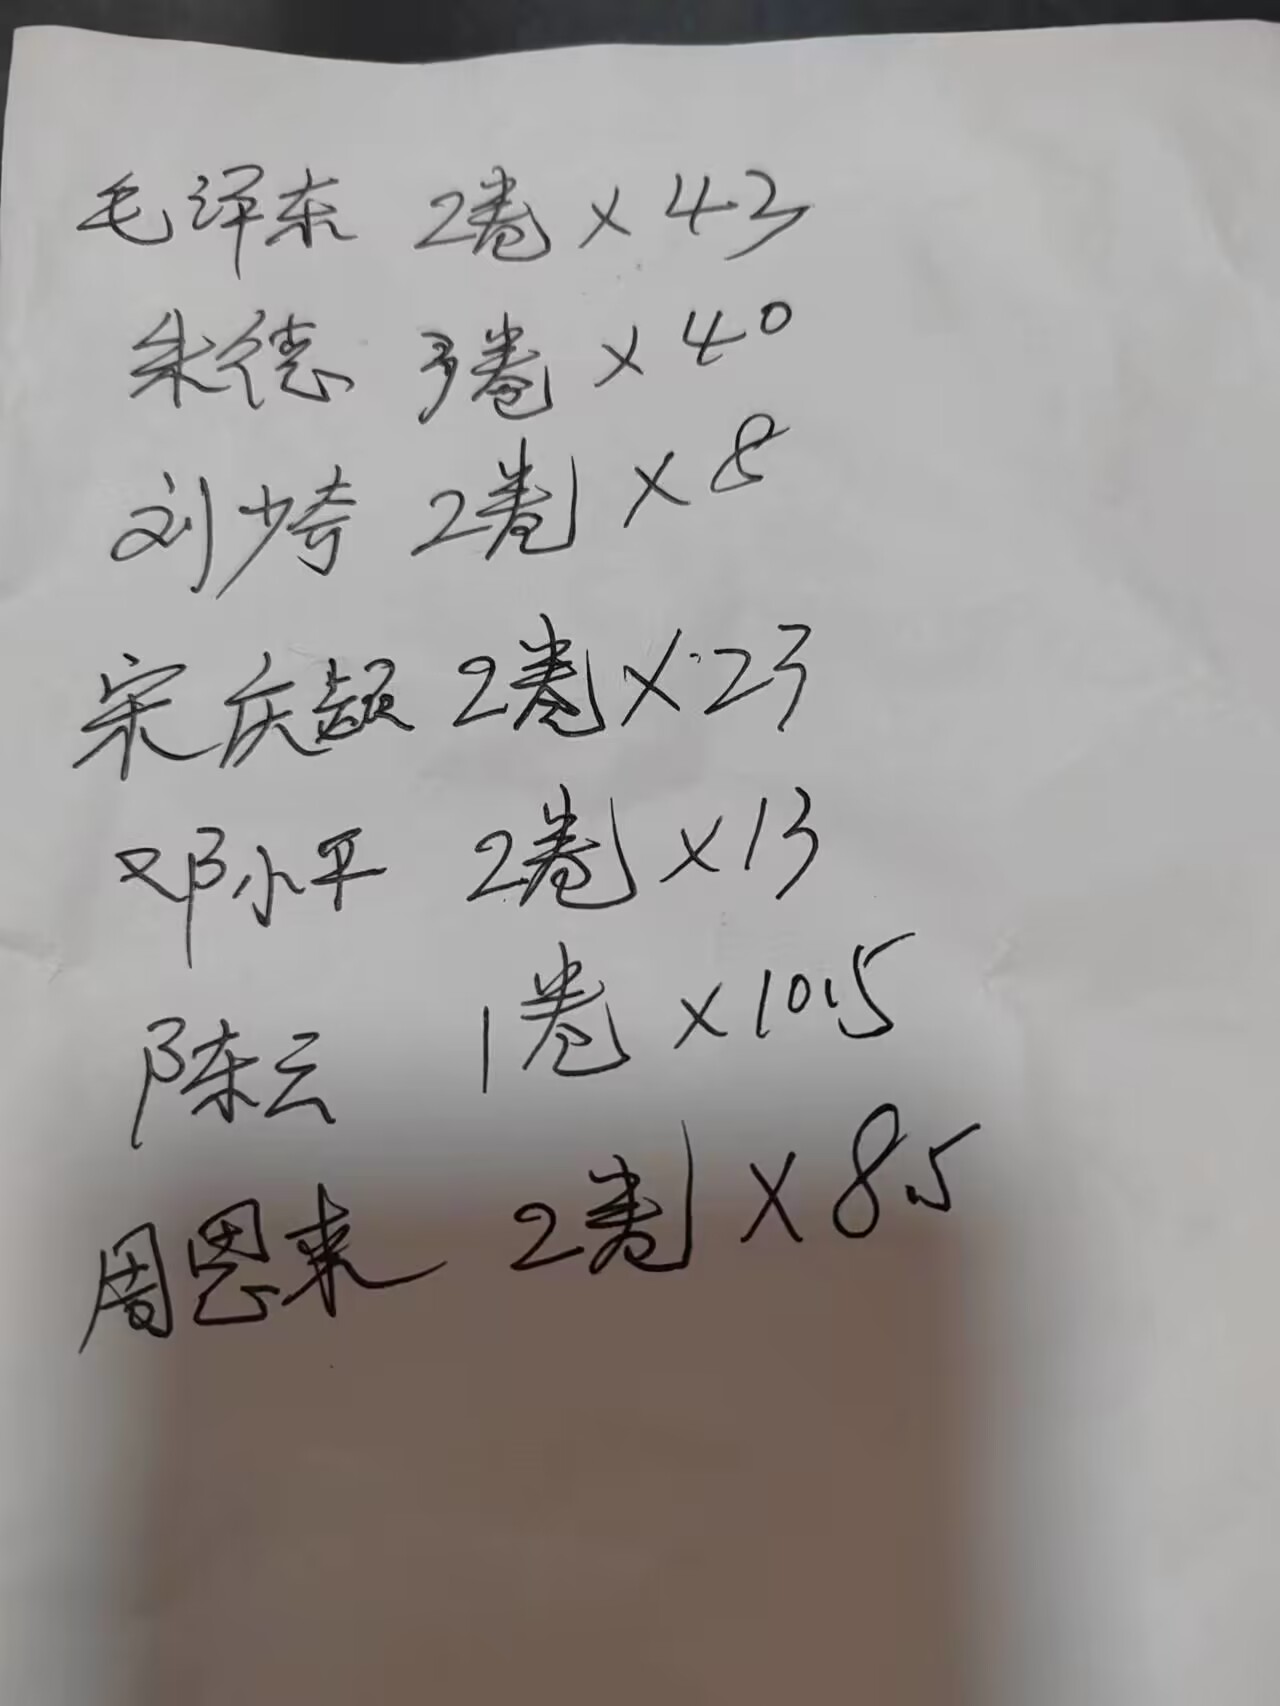 毛泽东 2卷×43
朱德 3卷×40
刘少奇 2卷×8
宋庆龄 2卷×23
邓小平 2卷×13
陈云 1卷×10.5
周恩来 2卷×8.5